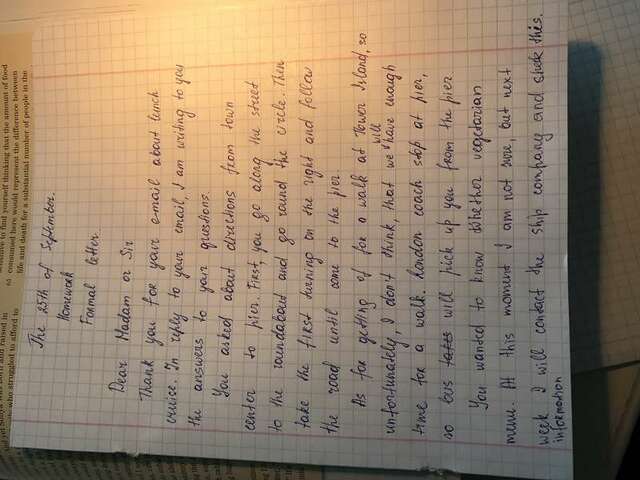 yet Sonya was born and raised in
who struggled to afford to
sensitive to find yourself thinking that the amount of food
65 consumed here would represent the difference between
life and death for a substantial number of people in the
The 25th of September.
Homework
Formal letter
Dear Madam or Sir
Thank you for your e-mail about lunch
cruise. In reply to your email, I am writing to you
the answers to your questions.
You asked about directions from town
center to pier. First, you go along the street
to the roundabout and go round the circle. Then
take the first turning on the right and follow
the road until come to the pier.
As for getting of for a walk at Tower Island, so
unfortunately, I don't think, that we will have enough
time for a walk. London coach stop at pier,
so bus takes will pick up you from the pier
You wanted to know whether vegetarian
menu. At this moment I am not sure, but next
week I will contact the ship company and shek this.
information